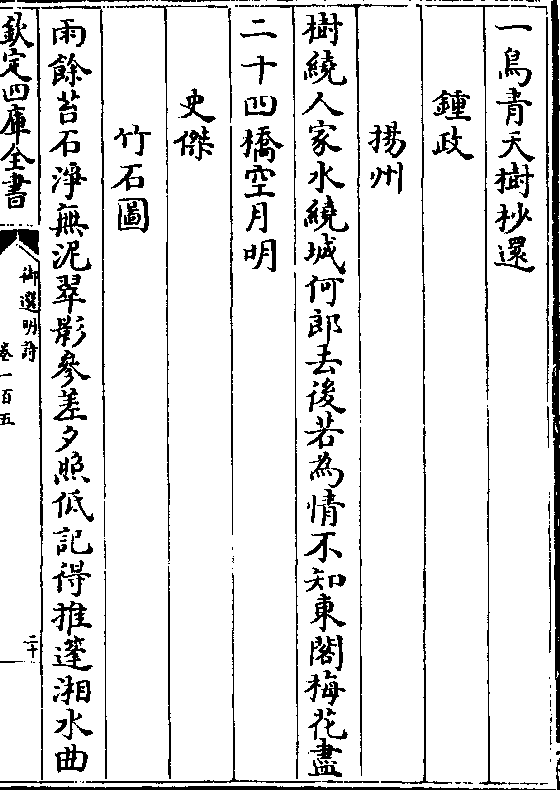 一鳥青天樹抄還
鍾政
揚州
樹繞人家水繞城何郎去後若為情不知東閣梅花盡
二十四橋空月明
史傑
竹石圖
雨餘苔石淨無泥翠影參差夕照低記得推篷湘水曲
欽定四庫全書
御選明詩
卷一百五
二十